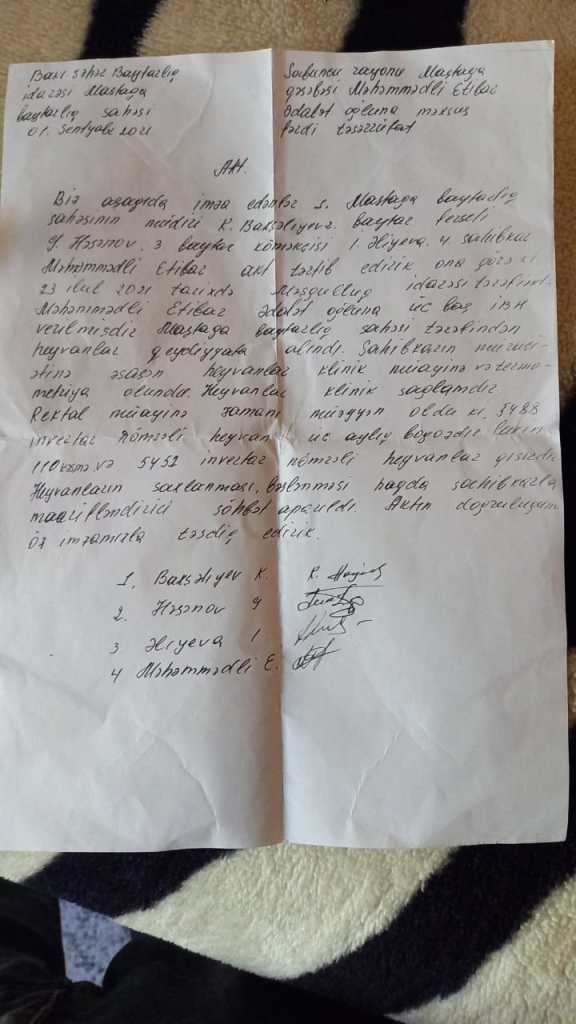 Bakı şəhər Baytarlıq
idarəsi Maştağa
baytarlıq sahəsi
01. Sentyabr 2021
Sabunçu rayonu Maştağa
qəsəbəsi Məhəmmədli Etibar
Ədalət oğluna məxsus
fərdi təsərrüfat
Akt.
Biz aşağıda imza edənlər 1. Maştağa baytarlıq
sahəsinin müdiri K. Bakşəliyev 2. baytar feldşeri
Y. Həsənov. 3 baytar köməkçisi İ. Əliyeva. 4 sahibkar
Məhəmmədli Etibar akt tərtib edirik ona görə ki
23 iyul 2021 tarixdə Məşğulluq idarəsi tərəfindən
Məhəmmədli Etibar Ədalət oğluna üç baş İBH
verilmişdir Maştağa baytarlıq sahəsi tərəfindən
heyvanlar qeydiyyata alındı. Sahibkarın müraci-
ətinə əsasən heyvanlar klinik müayinə və termo-
metriya olundu. Heyvanlar klinik sağlamdır
Rektal müayinə zamanı müəyyən oldu ki, 5488
inventar nömrəli heyvan üç aylıq boğazdır lakin
və 5452 inventar nömrəli heyvanlar qısırdır
Heyvanların saxlanması, bəslənməsi haqda sahibkarla
maarifləndirici söhbət aparıldı. Aktın doğruluğunu
öz imzamızla təsdiq edirik.
1. Bakşəliyev K.
2. Həsənov Y
3 Əliyeva İ
4 Məhəmmədli E.